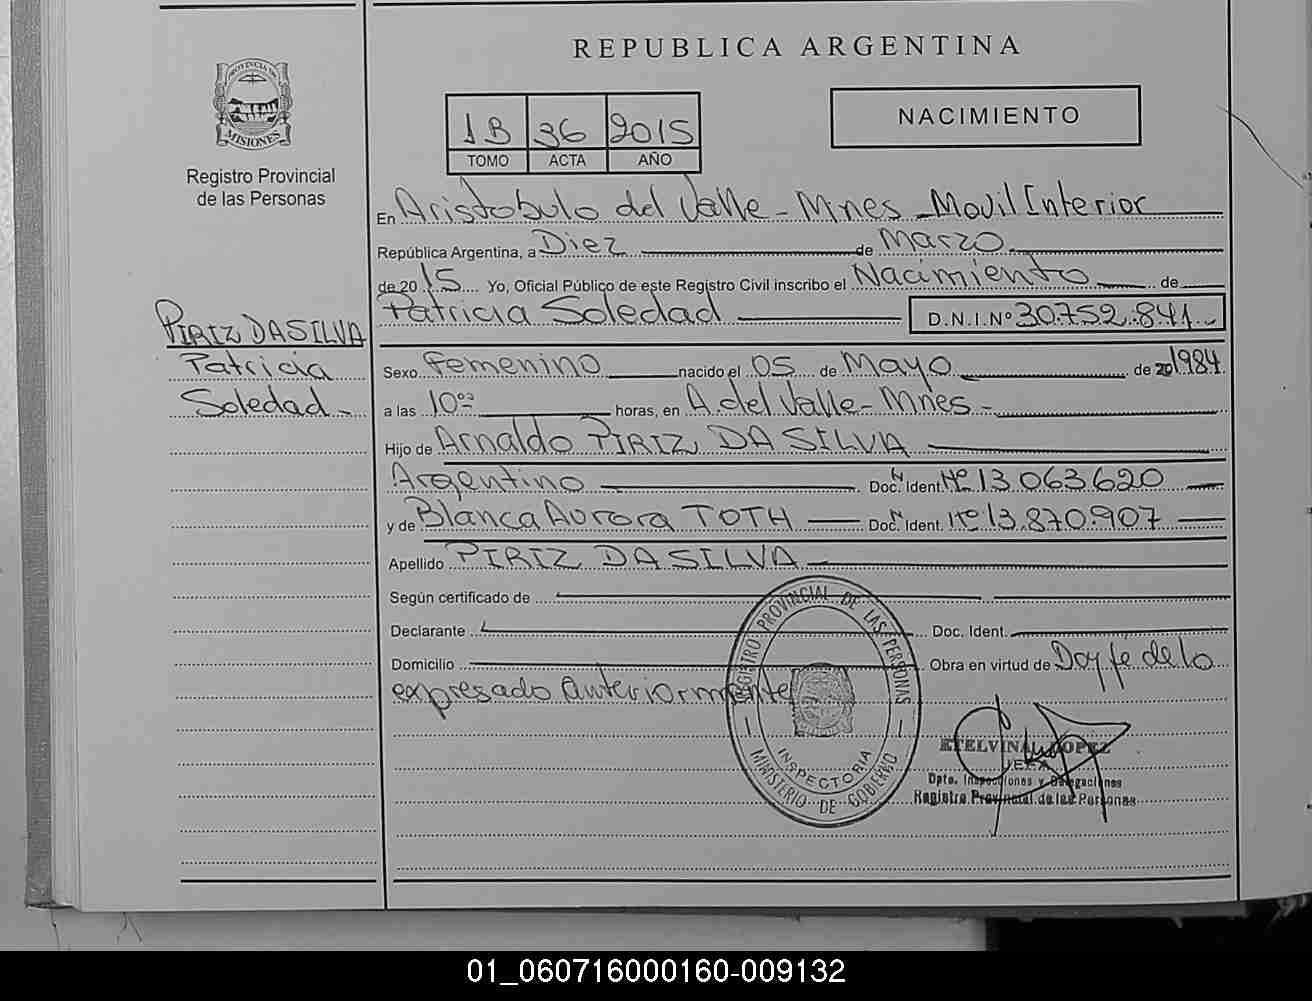 REPUBLICA ARGENTINA
PROVINCIA DE
MISIONES
Registro Provincial
de las Personas
1B 36 2015
TOMO ACTA AÑO
NACIMIENTO
En Aristobulo del Valle - Mnes - Movil Interior
República Argentina, a Diez de Marzo
de 2015 Yo, Oficial Público de este Registro Civil inscribo el Nacimiento de
Patricia Soledad D.N.I.Nº 30.752.841
PIRIZ DA SILVA
Patricia
Soledad -
Sexo Femenino nacido el 05 de Mayo de 1984
a las 10 horas, en A. del Valle - Mnes -
Hijo de Arnaldo PIRIZ DA SILVA
Argentino Doc. Ident. Nº 13.063.620
y de Blanca Aurora TOTH Doc. Ident. Nº 13.870.907
Apellido PIRIZ DA SILVA
Según certificado de
Declarante Doc. Ident.
Domicilio Obra en virtud de Doy fe de lo
expresado anteriormente
REGISTRO PROVINCIAL DE LAS PERSONAS
INSPECTORIA
MINISTERIO DE GOBIERNO
ETELVINA LOPEZ
JEFA
Dpto. Inspecciones y Delegaciones
Registro Provincial de las Personas
01_060716000160-009132